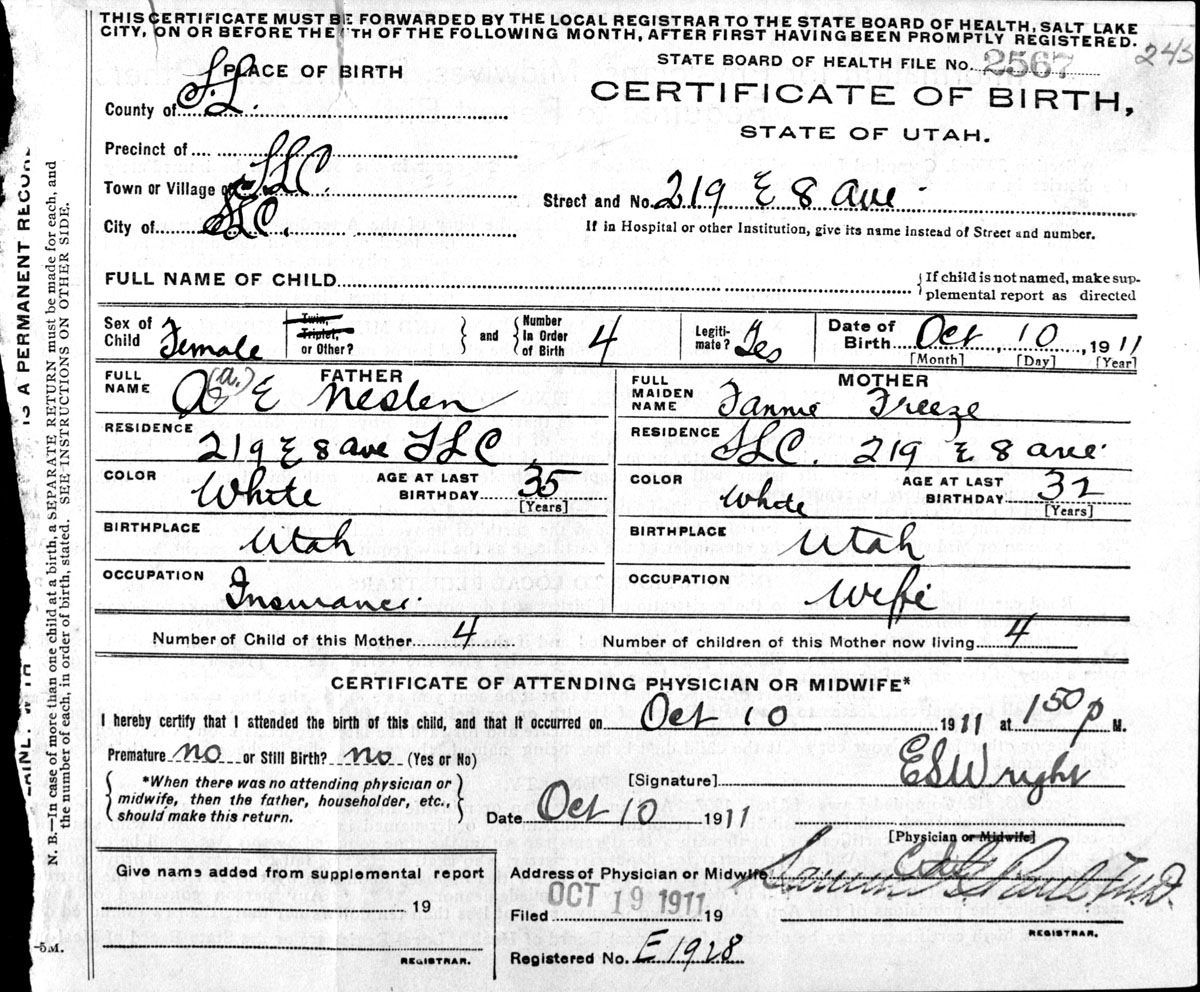 THIS CERTIFICATE MUST BE FORWARDED BY THE LOCAL REGISTRAR TO THE STATE BOARD OF HEALTH, SALT LAKE
CITY, ON OR BEFORE THE TH OF THE FOLLOWING MONTH, AFTER FIRST HAVING BEEN PROMPTLY REGISTERED.
245
STATE BOARD OF HEALTH FILE No. 2567
PLACE OF BIRTH
CERTIFICATE OF BIRTH,
STATE OF UTAH.
County of S.L.
Precinct of
Town or Village of SLC.
Street and No. 219 E 8 ave.
City of SLC.
If in Hospital or other Institution, give its name instead of Street and number.
FULL NAME OF CHILD
If child is not named, make sup-
plemental report as directed
Sex of Child Female
Twin, Triplet, or Other?
and Number In Order of Birth 4
Legiti-mate? Yes
Date of Birth Oct, 10, 1911
[Month] [Day] [Year]
FATHER
FULL NAME (a.) E Neslen
MOTHER
FULL MAIDEN NAME Fannie Freeze
RESIDENCE 219 E 8 ave SLC
RESIDENCE SLC. 219 E 8 ave.
COLOR White AGE AT LAST BIRTHDAY 35 [Years]
COLOR White AGE AT LAST BIRTHDAY 32 [Years]
BIRTHPLACE Utah
BIRTHPLACE Utah
OCCUPATION Insurance.
OCCUPATION Wife
Number of Child of this Mother 4
Number of children of this Mother now living 4
CERTIFICATE OF ATTENDING PHYSICIAN OR MIDWIFE*
I hereby certify that I attended the birth of this child, and that it occurred on Oct 10 1911 at 1 50 p M.
Premature no or Still Birth? no (Yes or No)
[Signature] ESWright
*When there was no attending physician or
midwife, then the father, householder, etc.,
should make this return.
Date Oct 10 1911
[Physician or Midwife]
Give name added from supplemental report
Address of Physician or Midwife City
19
Filed OCT 19 1911 19
REGISTRAR.
REGISTRAR.
Registered No. E1928
IS A PERMANENT RECORD
N. B.—In case of more than one child at a birth, a SEPARATE RETURN must be made for each, and
the number of each, in order of birth, stated. SEE INSTRUCTIONS ON OTHER SIDE.
-5M.